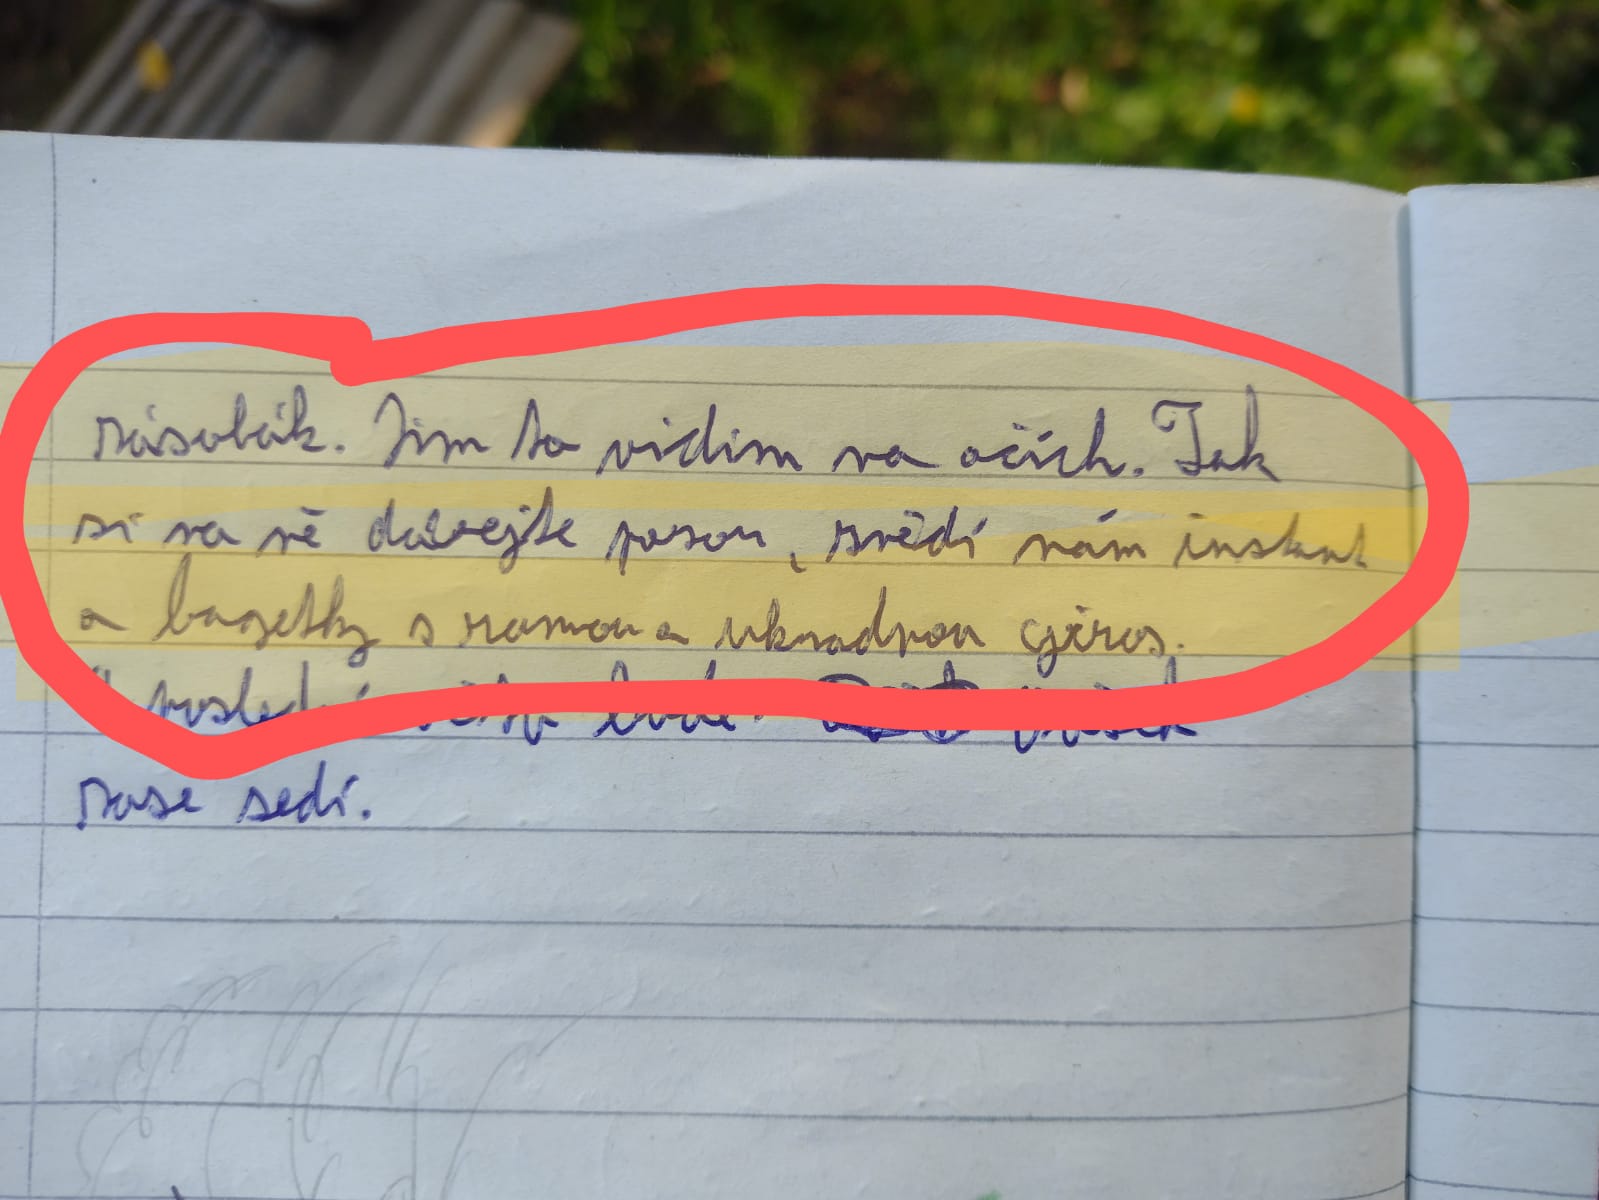 zásobák. Jim to vidim na očích. Tak
si na ně dávejte pozor, snědí nám instant
a bagetky s ramou a ukradnou gyros.
poslední bude písek
zase sedí.